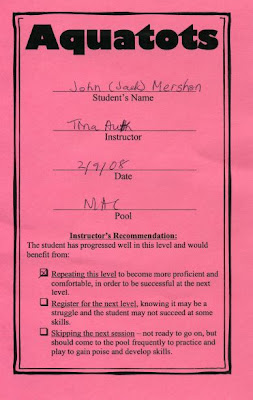 Aquatots
John (Jack) Mershon
Student's Name
Tina
Instructor
2/9/08
Date
MAC
Pool
Instructor's Recommendation:
The student has progressed well in this level and would
benefit from:
☒ Repeating this level to become more proficient and
comfortable, in order to be successful at the next
level.
☐ Register for the next level, knowing it may be a
struggle and the student may not succeed at some
skills.
☐ Skipping the next session – not ready to go on, but
should come to the pool frequently to practice and
play to gain poise and develop skills.